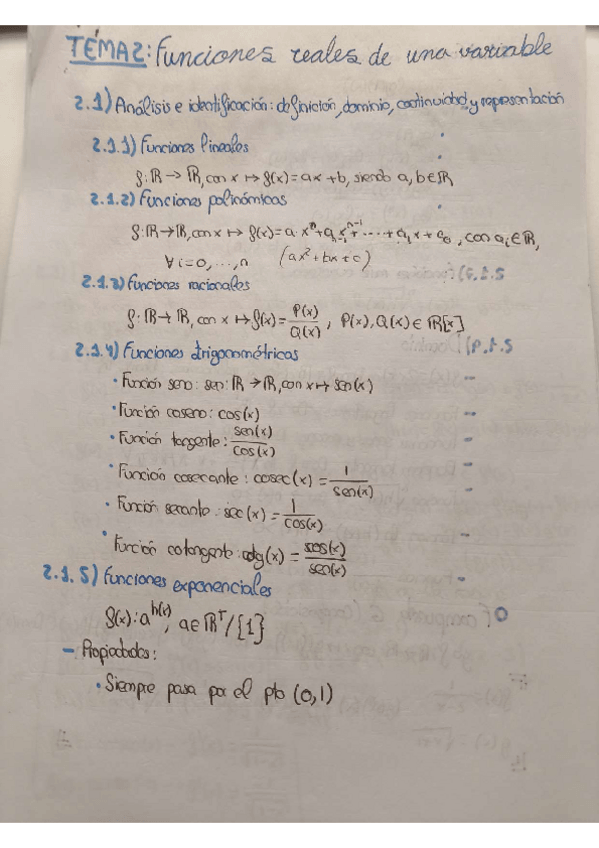 TEMA2: Funciones reales de una variable
2.1) Análisis e identificación: definición, dominio, continuidad y representación
2.1.1) Funciones lineales
f: ℝ → ℝ, con x ↦ f(x) = ax + b, siendo a, b ∈ ℝ
2.1.2) Funciones polinómicas
f: ℝ → ℝ, con x ↦ f(x) = aₙ xⁿ + aₙ₋₁ xⁿ⁻¹ + ... + a₁x + a₀, con aᵢ ∈ ℝ,
∀ i = 0, ..., n (ax² + bx + c)
2.1.3) Funciones racionales
f: ℝ → ℝ, con x ↦ f(x) = P(x)/Q(x), P(x), Q(x) ∈ ℝ[x]
2.1.4) Funciones trigonométricas
• Función seno: sen: ℝ → ℝ, con x ↦ sen(x)
• Función coseno: cos(x)
• Función tangente: sen(x)/cos(x)
• Función cosecante: cosec(x) = 1/sen(x)
• Función secante: sec(x) = 1/cos(x)
• Función cotangente: cotg(x) = cos(x)/sen(x)
2.1.5) Funciones exponenciales
f(x): a^h(x), a ∈ ℝ⁺/{1}
– Propiedades:
• Siempre pasa por el pto (0,1)